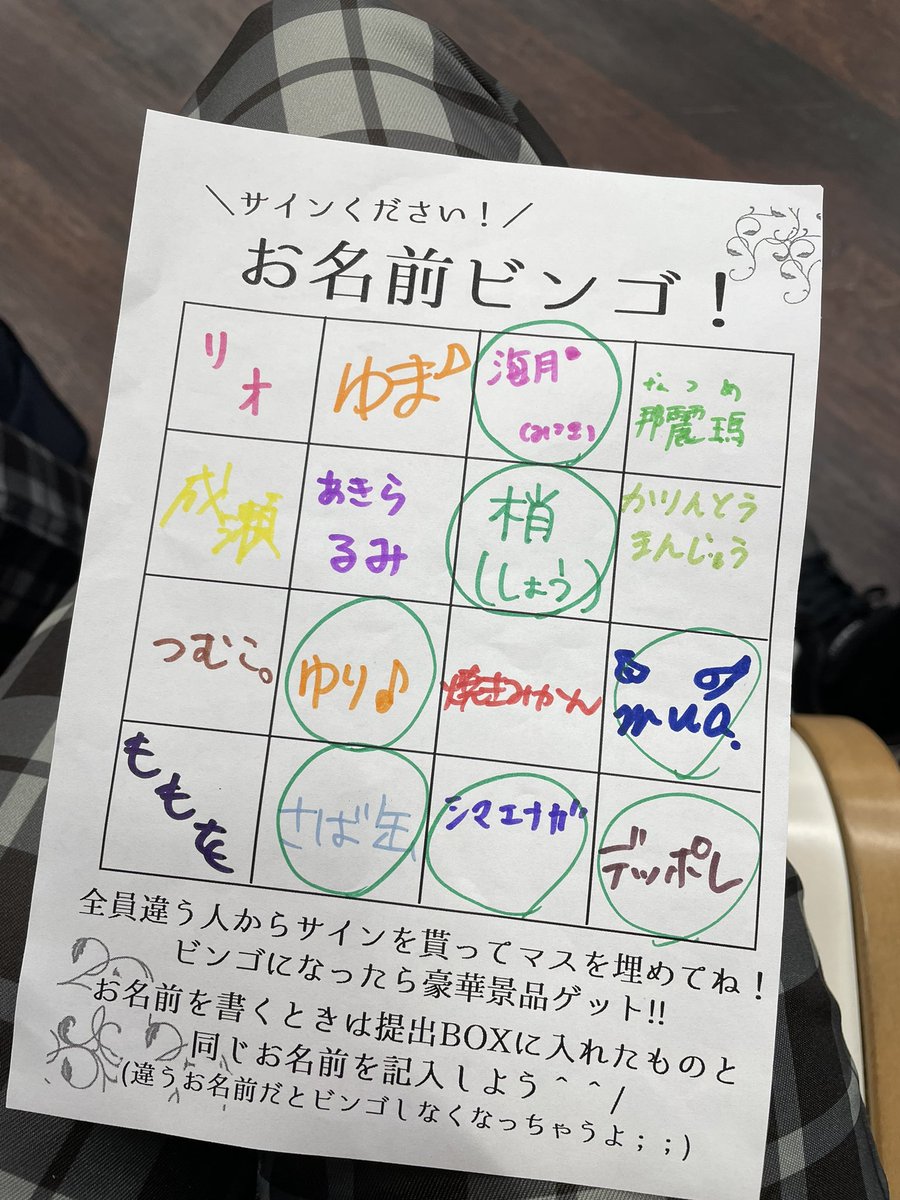 ＼サインください！／
お名前ビンゴ！
リオ
ゆま♪
海月
(みつき)
なつめ
那麗瑪
成瀬
あきら
るみ
梢
(しょう)
かりんとう
まんじゅう
つむこ。
ゆり♪
焼きみかん
mua.
ももを
さば缶
シマエナガ
デッポレ
全員違う人からサインを貰ってマスを埋めてね！
ビンゴになったら豪華景品ゲット!!
お名前を書くときは提出BOXに入れたものと
同じお名前を記入しよう＾＾/
(違うお名前だとビンゴしなくなっちゃうよ；；)